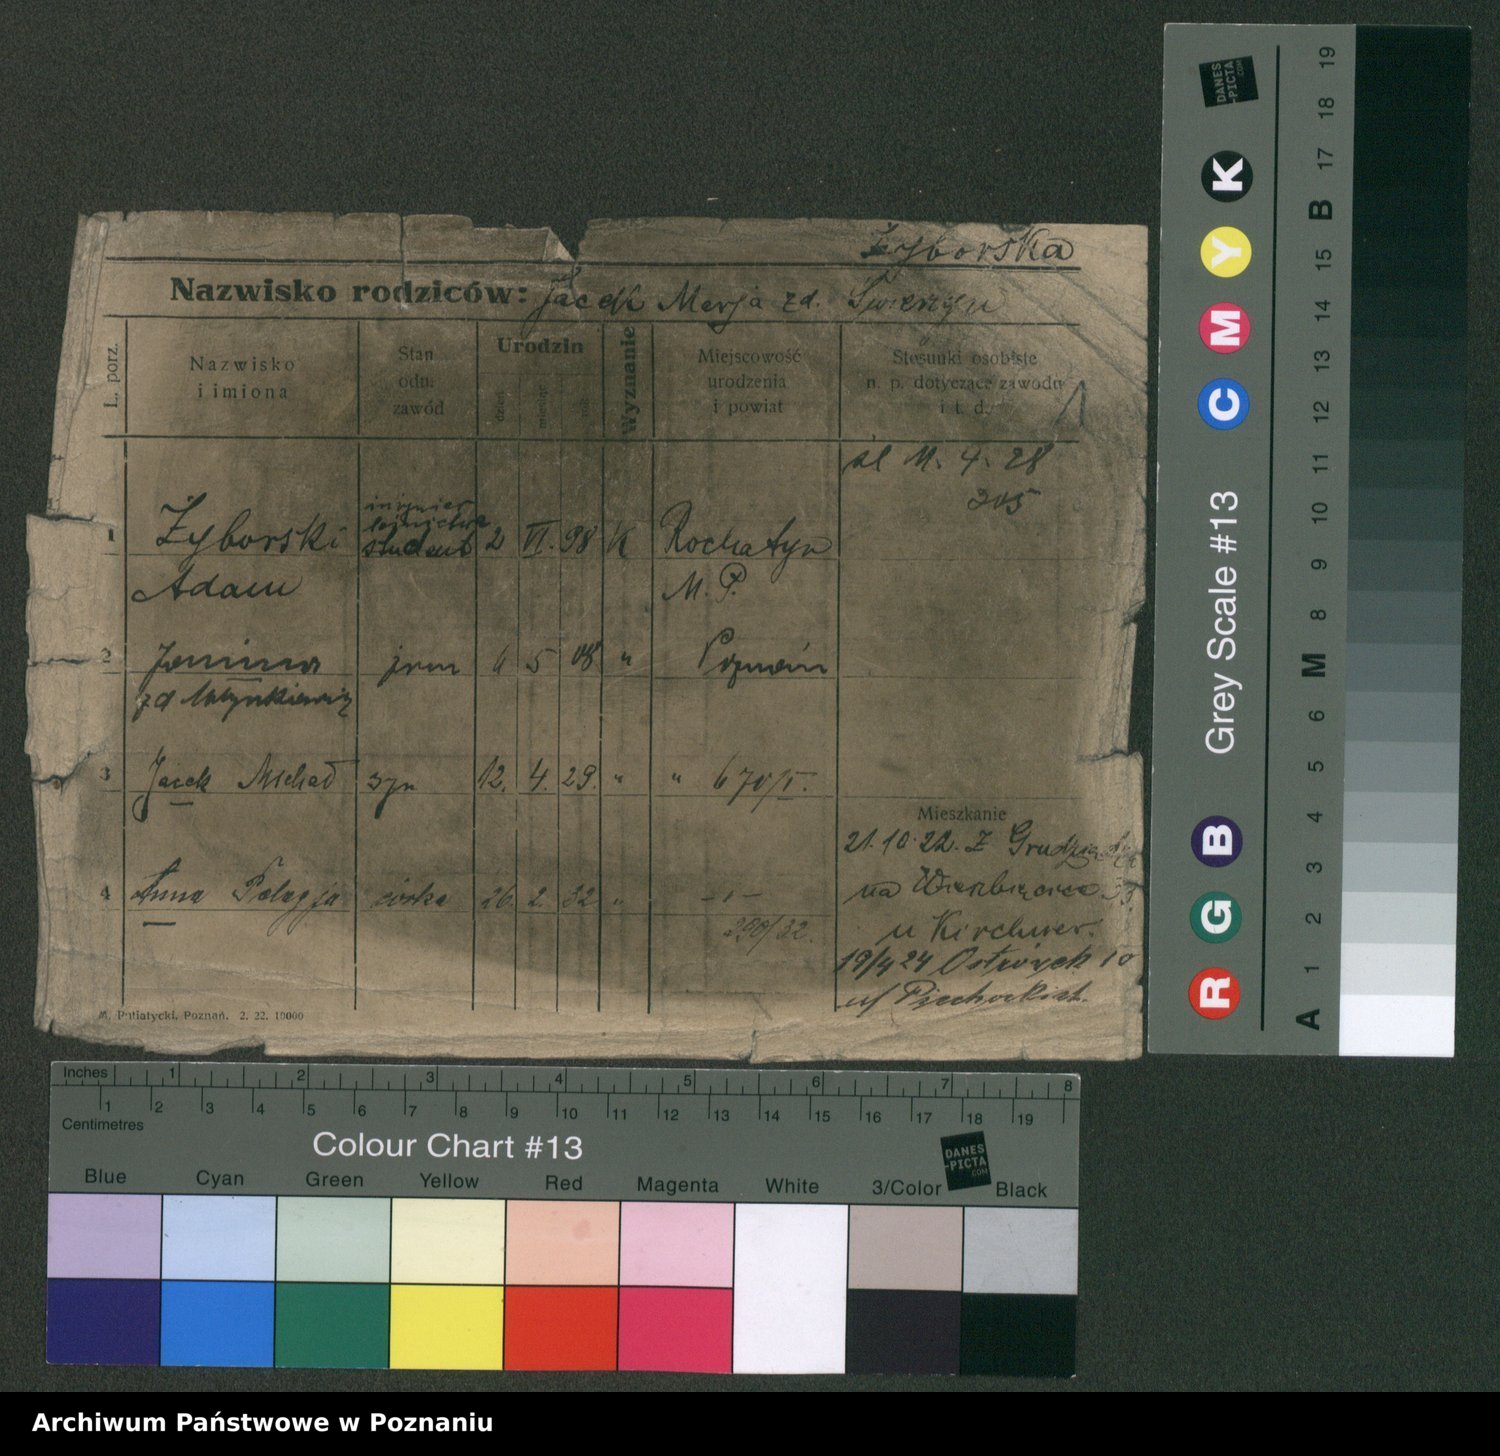 Żyborska
Nazwisko rodziców: Jacek Marja zd.
L. porz.
Nazwisko
i imiona
Stan
odn.
zawód
Urodzin
dzień
miesiąc
rok
Wyznanie
Miejscowość
urodzenia
i powiat
Stosunki osobiste
n. p. dotyczące zawodu
i t. d.
sl 11. 4. 28
305
inżynier
1 Żyborski student 2 VI. 98 K Rochatyn
Adam M. P.
2 Janina żona 6 5 08 " Poznań
zd
3 Jacek Michał syn 12. 4. 29. " " 670/I.
Mieszkanie
21.10.22. Z Grudziądza
4 Anna Pelagja córka 26. 2. 32 " -"-
na Wierzbięcice 33
290/32.
u Kirchner.
19/4 24 10
u/
M. Putiatycki, Poznań. 2. 22. 10000
DANES
-PICTA
.COM
K
Y
M
C
B
G
R
Grey Scale #13
A 1 2 3 4 5 6 M 8 9 10 11 12 13 14 15 B 17 18 19
Inches 1 2 3 4 5 6 7 8
Centimetres 1 2 3 4 5 6 7 8 9 10 11 12 13 14 15 16 17 18 19
Colour Chart #13
DANES
-PICTA
.COM
Blue Cyan Green Yellow Red Magenta White 3/Color Black
Archiwum Państwowe w Poznaniu